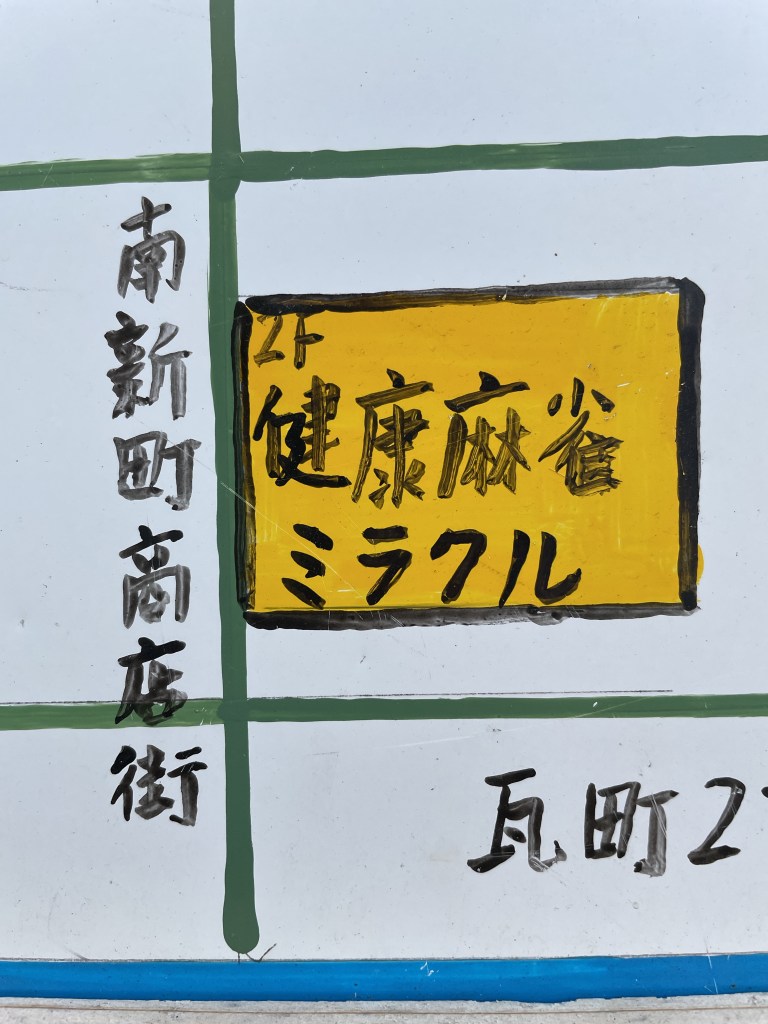 南新町商店街
2F
健康麻雀
ミラクル
瓦町2